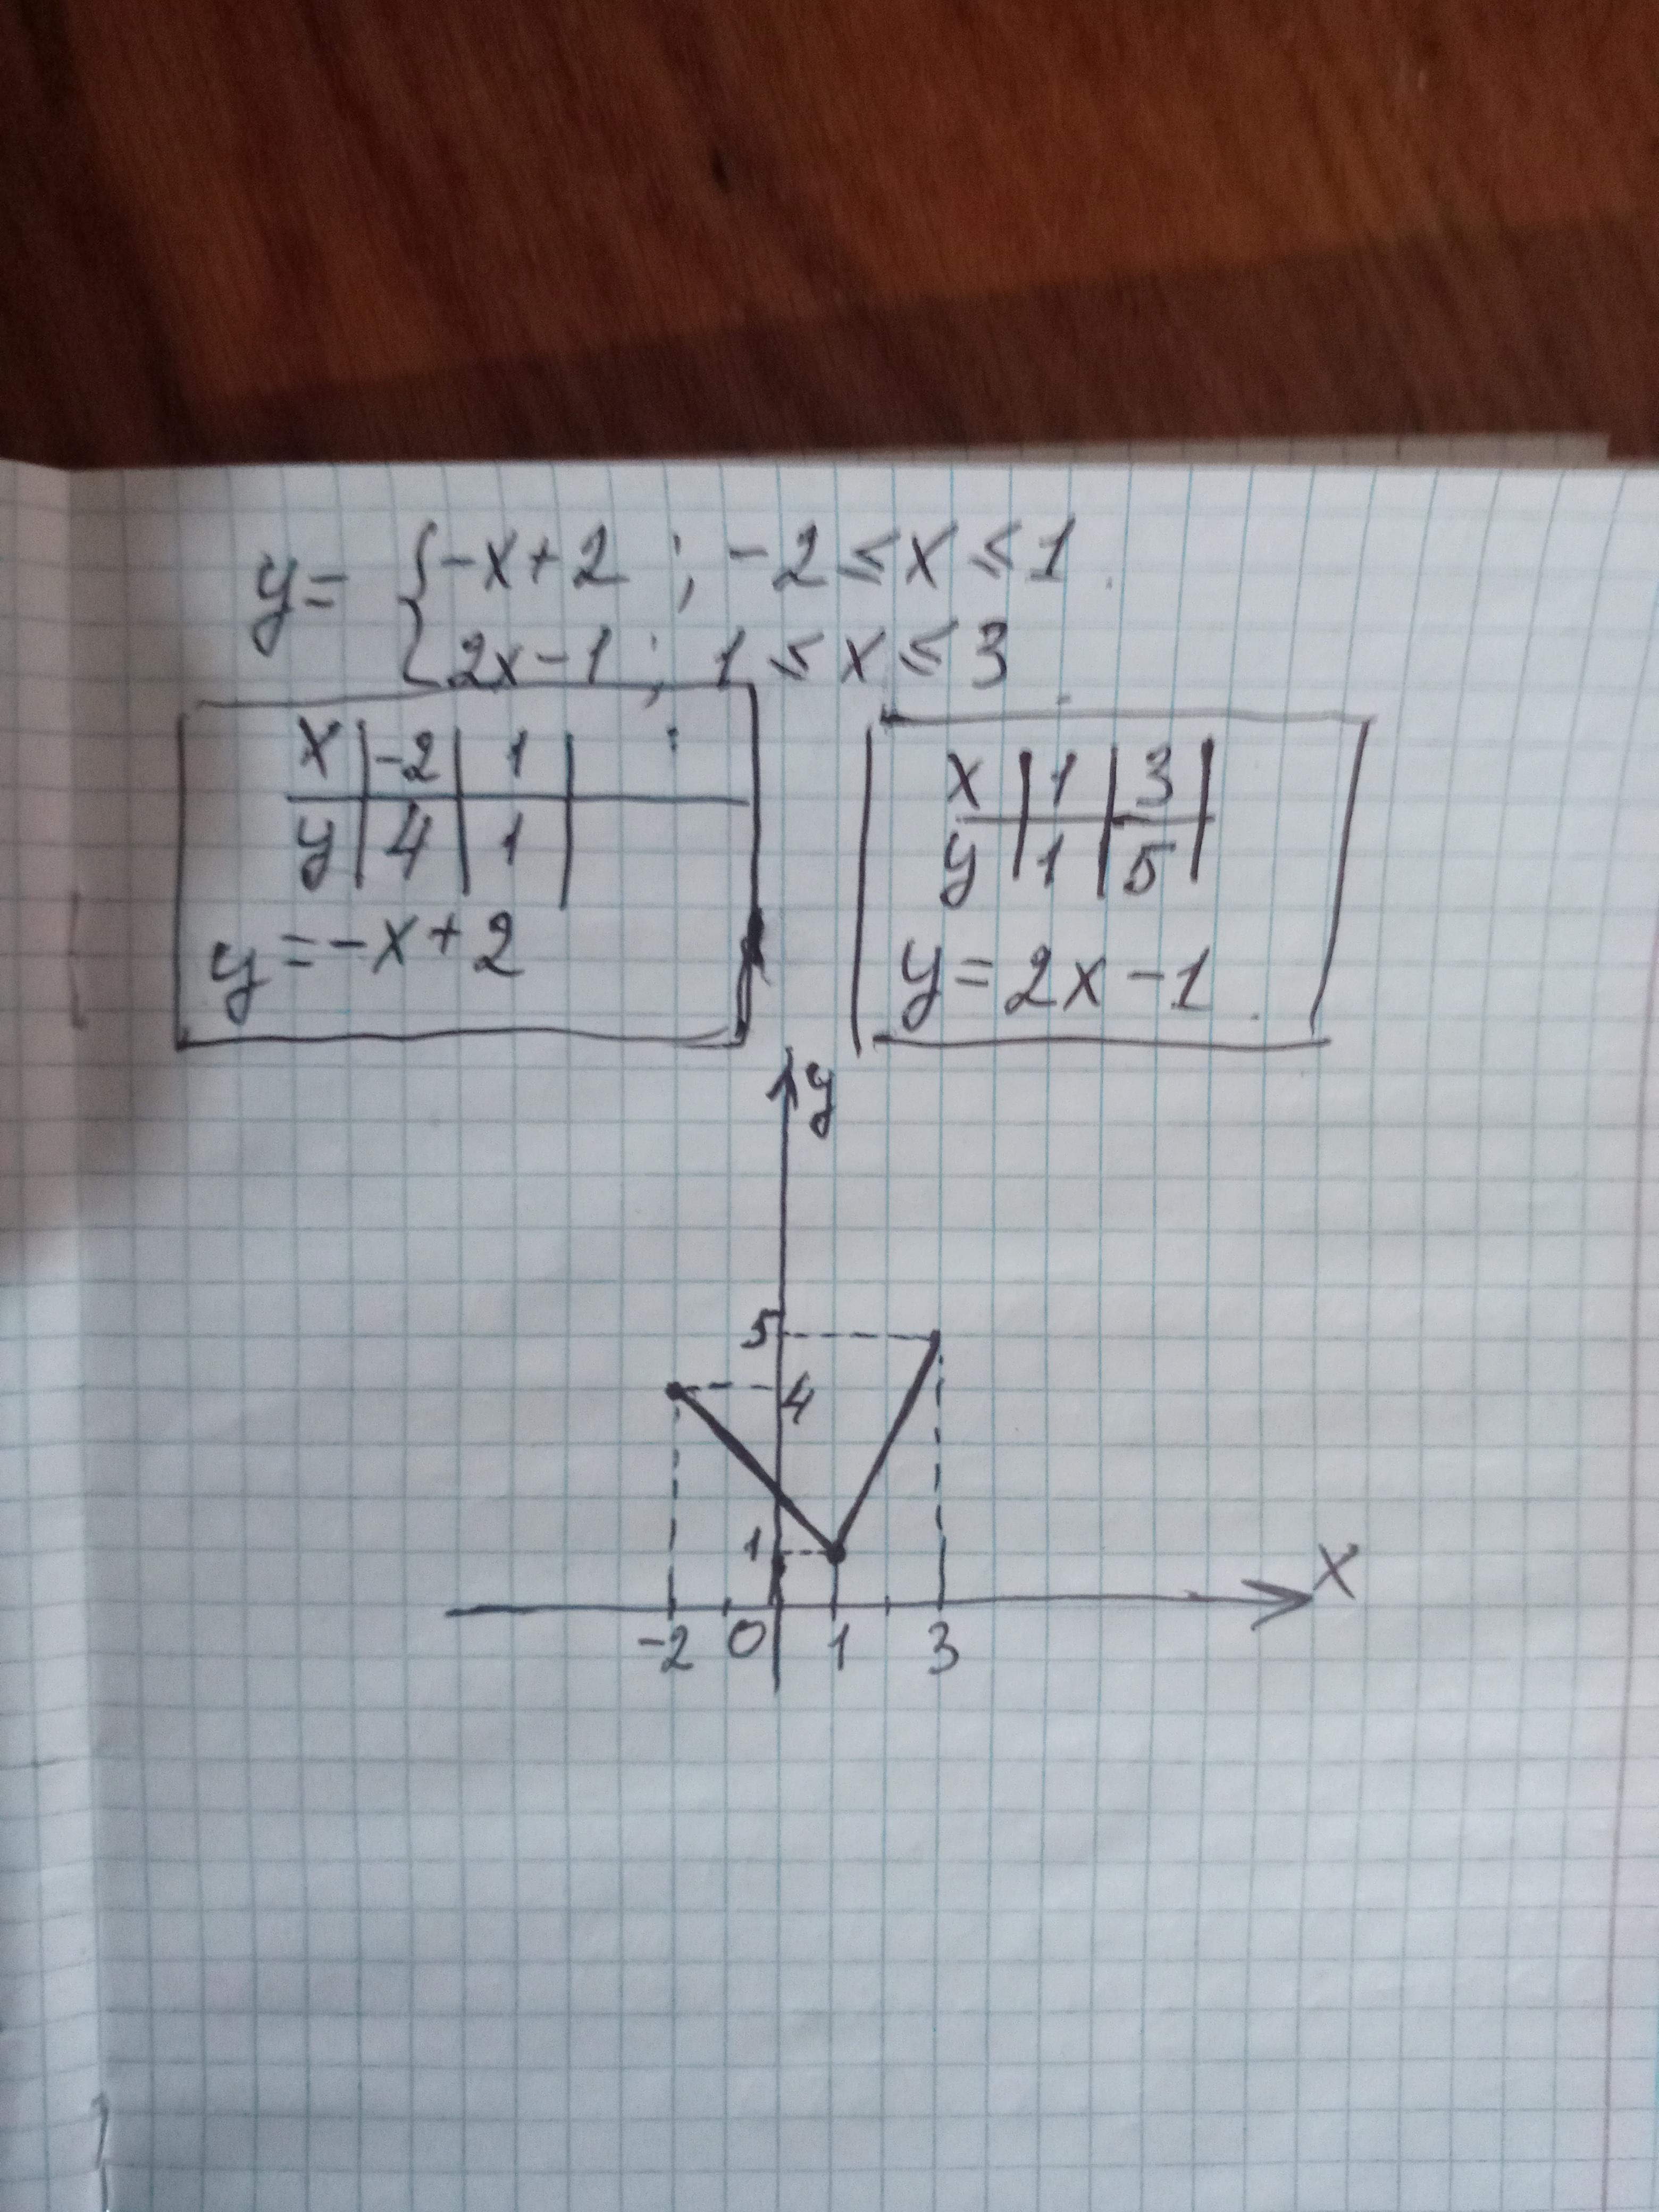 y = { -x+2 ; -2 ≤ x ≤ 1
2x-1 ; 1 ≤ x ≤ 3
x | -2 | 1 |
y | 4 | 1 |
y = -x+2
x | 1 | 3 |
y | 1 | 5 |
y = 2x-1
y
5
4
1
x
-2 0 1 3